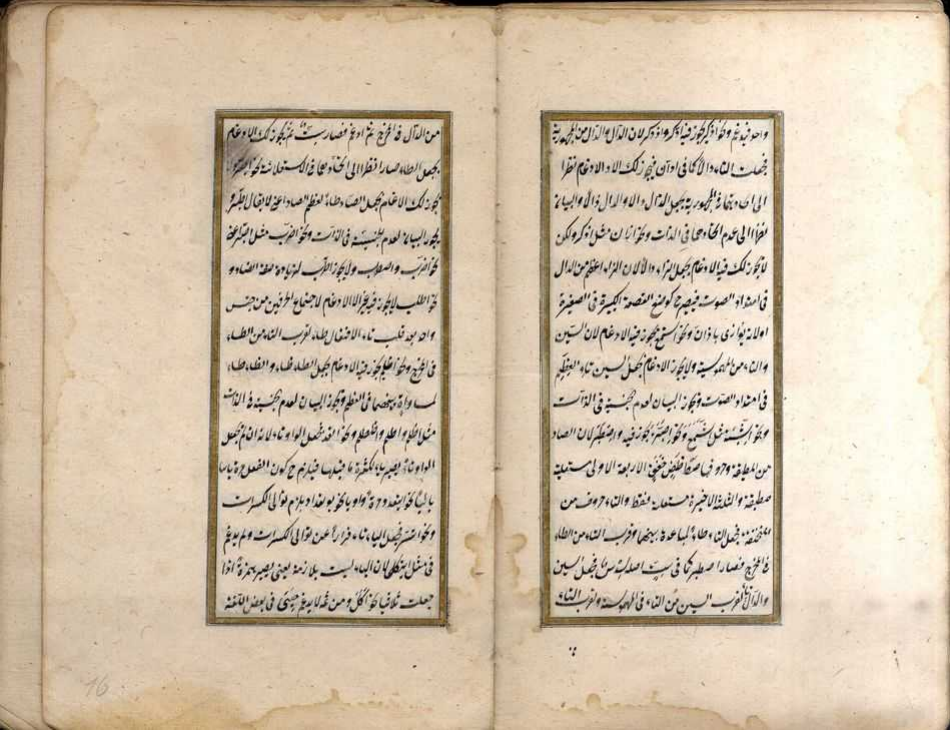 واحد فيدغم ونحو اذكر يجوز فيه اذكر واذدكر لان الدال والذال من المجهورية
فجعلت التاء دالا كما فى ادان فيجوز لك الادغام نظرا
الى اتحادهما فى المجهورية بجعل الذال دالا والدال ذالا والبيان
نظرا الى عدم اتحادهما فى الذات ونحو ازان مثل اذكر ولكن
لا يجوز لك فيه الادغام بجعل الزاء دالا لان الزاء اعظم من الدال
فى امتداد الصوت فيصير ح كوضع القصعة الكبيرة فى الصغيرة
او لانه يوازى بادان ونحو استمع يجوز فيه الادغام لان السين
والتاء من المهموسية ولا يجوز الادغام بجعل السين تاء لعظم
فى امتداد الصوت ويجوز البيان لعدم الجنسية فى الذات
ونحو اشبه مثل اسمع ونحو اصبر يجوز فيه واصطبر لان الصاد
من المطبقة وحروفها صطظض خغق الاربعة الاولى مستعلية
مطبقة والثلثة الاخيرة مستعلية فقط والتاء حروف من
المنخفضة فجعل التاء طاء لمباعدة بينهما وقرب التاء من الطاء
فى المخرج فصار اصطبر كما فى ست اصله سدس فجعل السين
والدال تاء لقرب السين من التاء فى المهموسة ولقرب التاء
من الدال فى المخرج ثم ادغم فصار ست ثم يجوز لك الادغام
بجعل الطاء صادا نظرا الى اتحادهما فى الاستعلائية نحو اصبر ولا
يجوز لك الادغام بجعل الصاد طاء لعظم الصاد اعنى لا يقال اطبر و
يجوز البيان لعدم الجنسية فى الذات ونحو اضرب مثل اصبر اعنى
نحو اضرب واضطرب ولا يجوز اطرب لزيادة صفة الضاد و
نحو اطلب لا يجوز فيه الا الادغام لاجتماع الحرفين من جنس
واحد بعد قلب تاء الافتعال طاء لقرب التاء من الطاء
فى المخرج ونحو اظلم يجوز فيه الادغام بجعل الطاء ظاء والظاء طاء
لمساواة بينهما فى العظم ويجوز البيان لعدم الجنسية فى الذات
مثل اظلم واطلم واظطلم ونحو اتعد فجعل الواو تاء لانه ان لم يجعل
الواو تاء يصير ياء لكسرة ما قبلها فيلزم ح كون الفعل مرة يائيا
نحو ايتعد ومرة واويا نحو يوتعد او يلزم توالى الكسرات
ونحو اتسر فجعل الياء تاء فرارا عن توالى الكسرات ولم يدغم
فى مثل ايتكل لان الياء ليست بلازمة يعنى يصير همزة اذا
جعلت ثلاثيا نحو اكل ومن ثمه لا يدغم حيى فى بعض اللغة